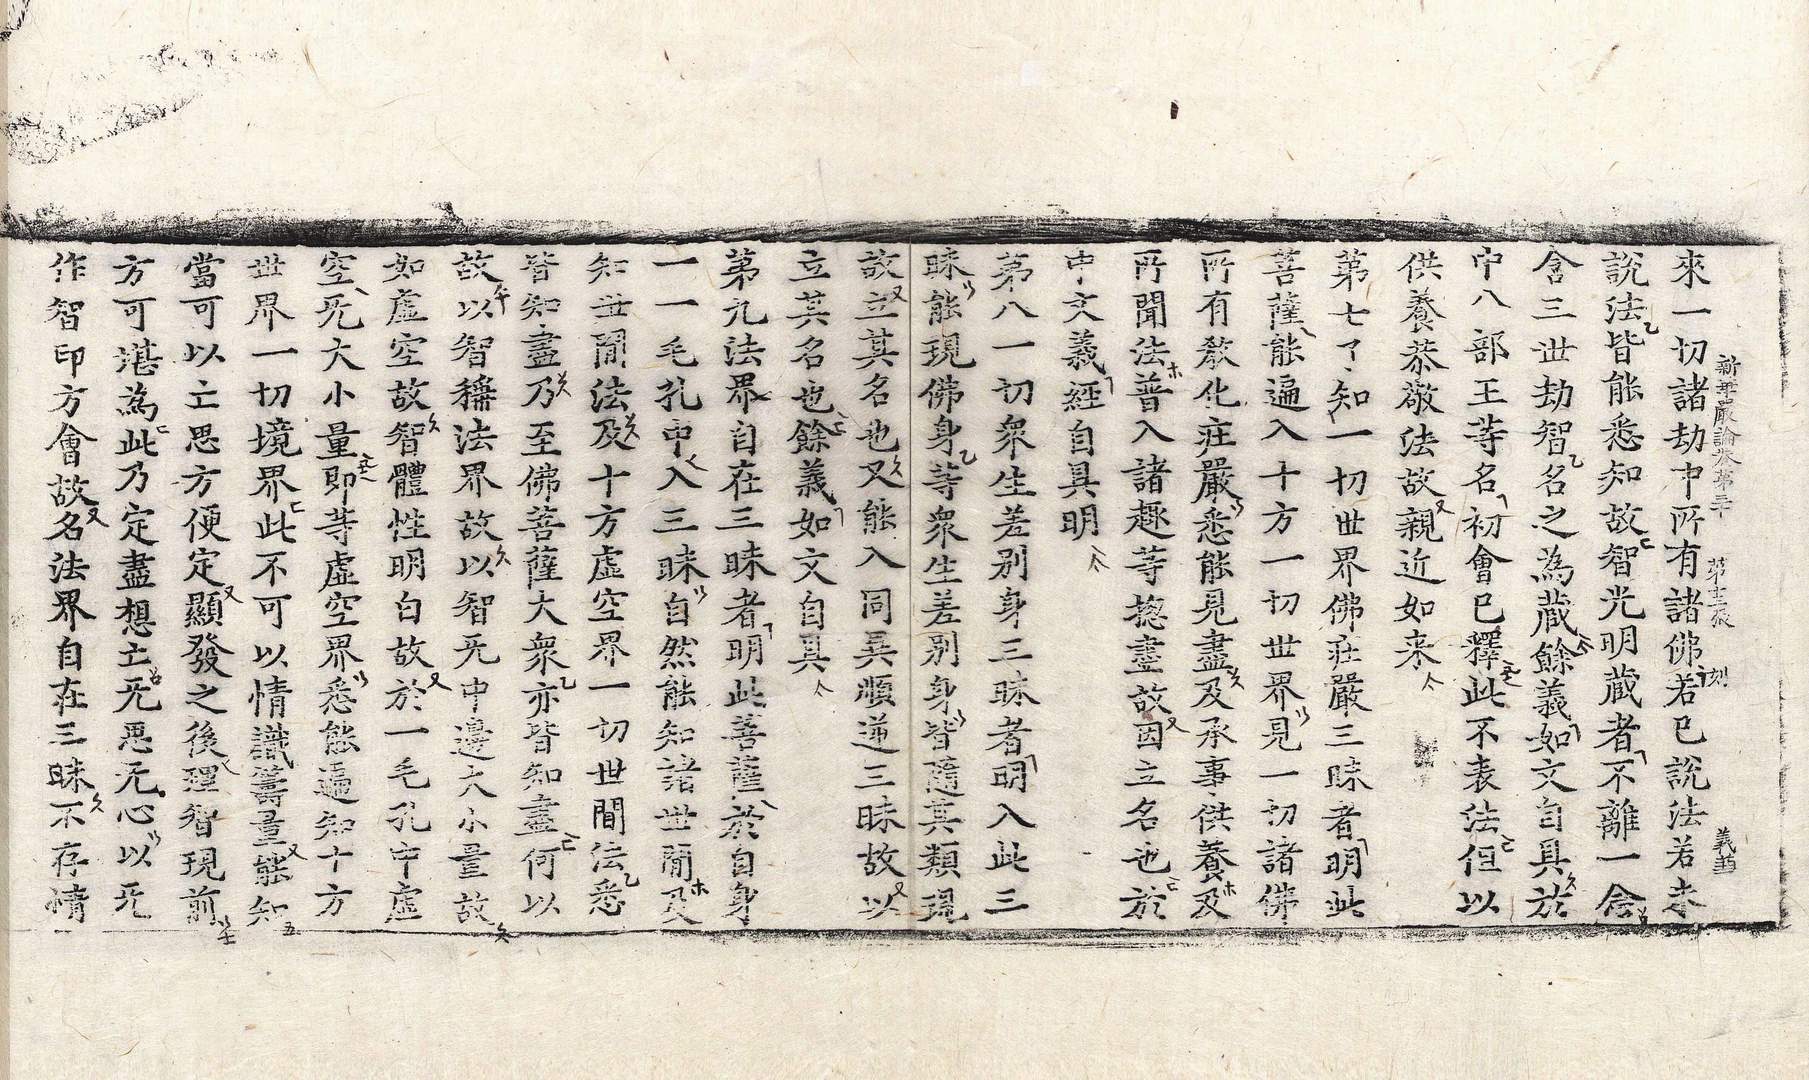 新華嚴論卷第三十 第十三張 刻 義
來一切諸劫中所有諸佛若已說法若未
說法皆能悉知故智光明藏者不離一念
含三世劫智名之為藏餘義如文自具於
中八部王等名初會已釋此不表法但以
供養恭敬法故親近如来
第七了知一切世界佛莊嚴三昧者明此
菩薩能遍入十方一切世界見一切諸佛
所有教化莊嚴悉能見盡及承事供養及
所聞法普入諸趣等揔盡故因立名也於
中文義經自具明
第八一切衆生差别身三昧者明入此三
昧能現佛身等衆生差别身皆隨其類現
故立其名也又能入同異順逆三昧故以
立其名也餘義如文自具
第九法界自在三昧者明此菩薩於自身
一一毛孔中入三昧自然能知諸世間及
知世間法及十方虛空界一切世間法悉
皆知盡乃至佛菩薩大衆亦皆知盡何以
故以智稱法界故以智无中邊大小量故
如虛空故智體性明白故於一毛孔中虛
空无大小量即等虛空界悉能遍知十方
世界一切境界此不可以情識籌量能知
當可以亡思方便定顯發之後理智現前
方可堪為此乃定盡想亡无惡无心以无
作智印方會故名法界自在三昧不存情